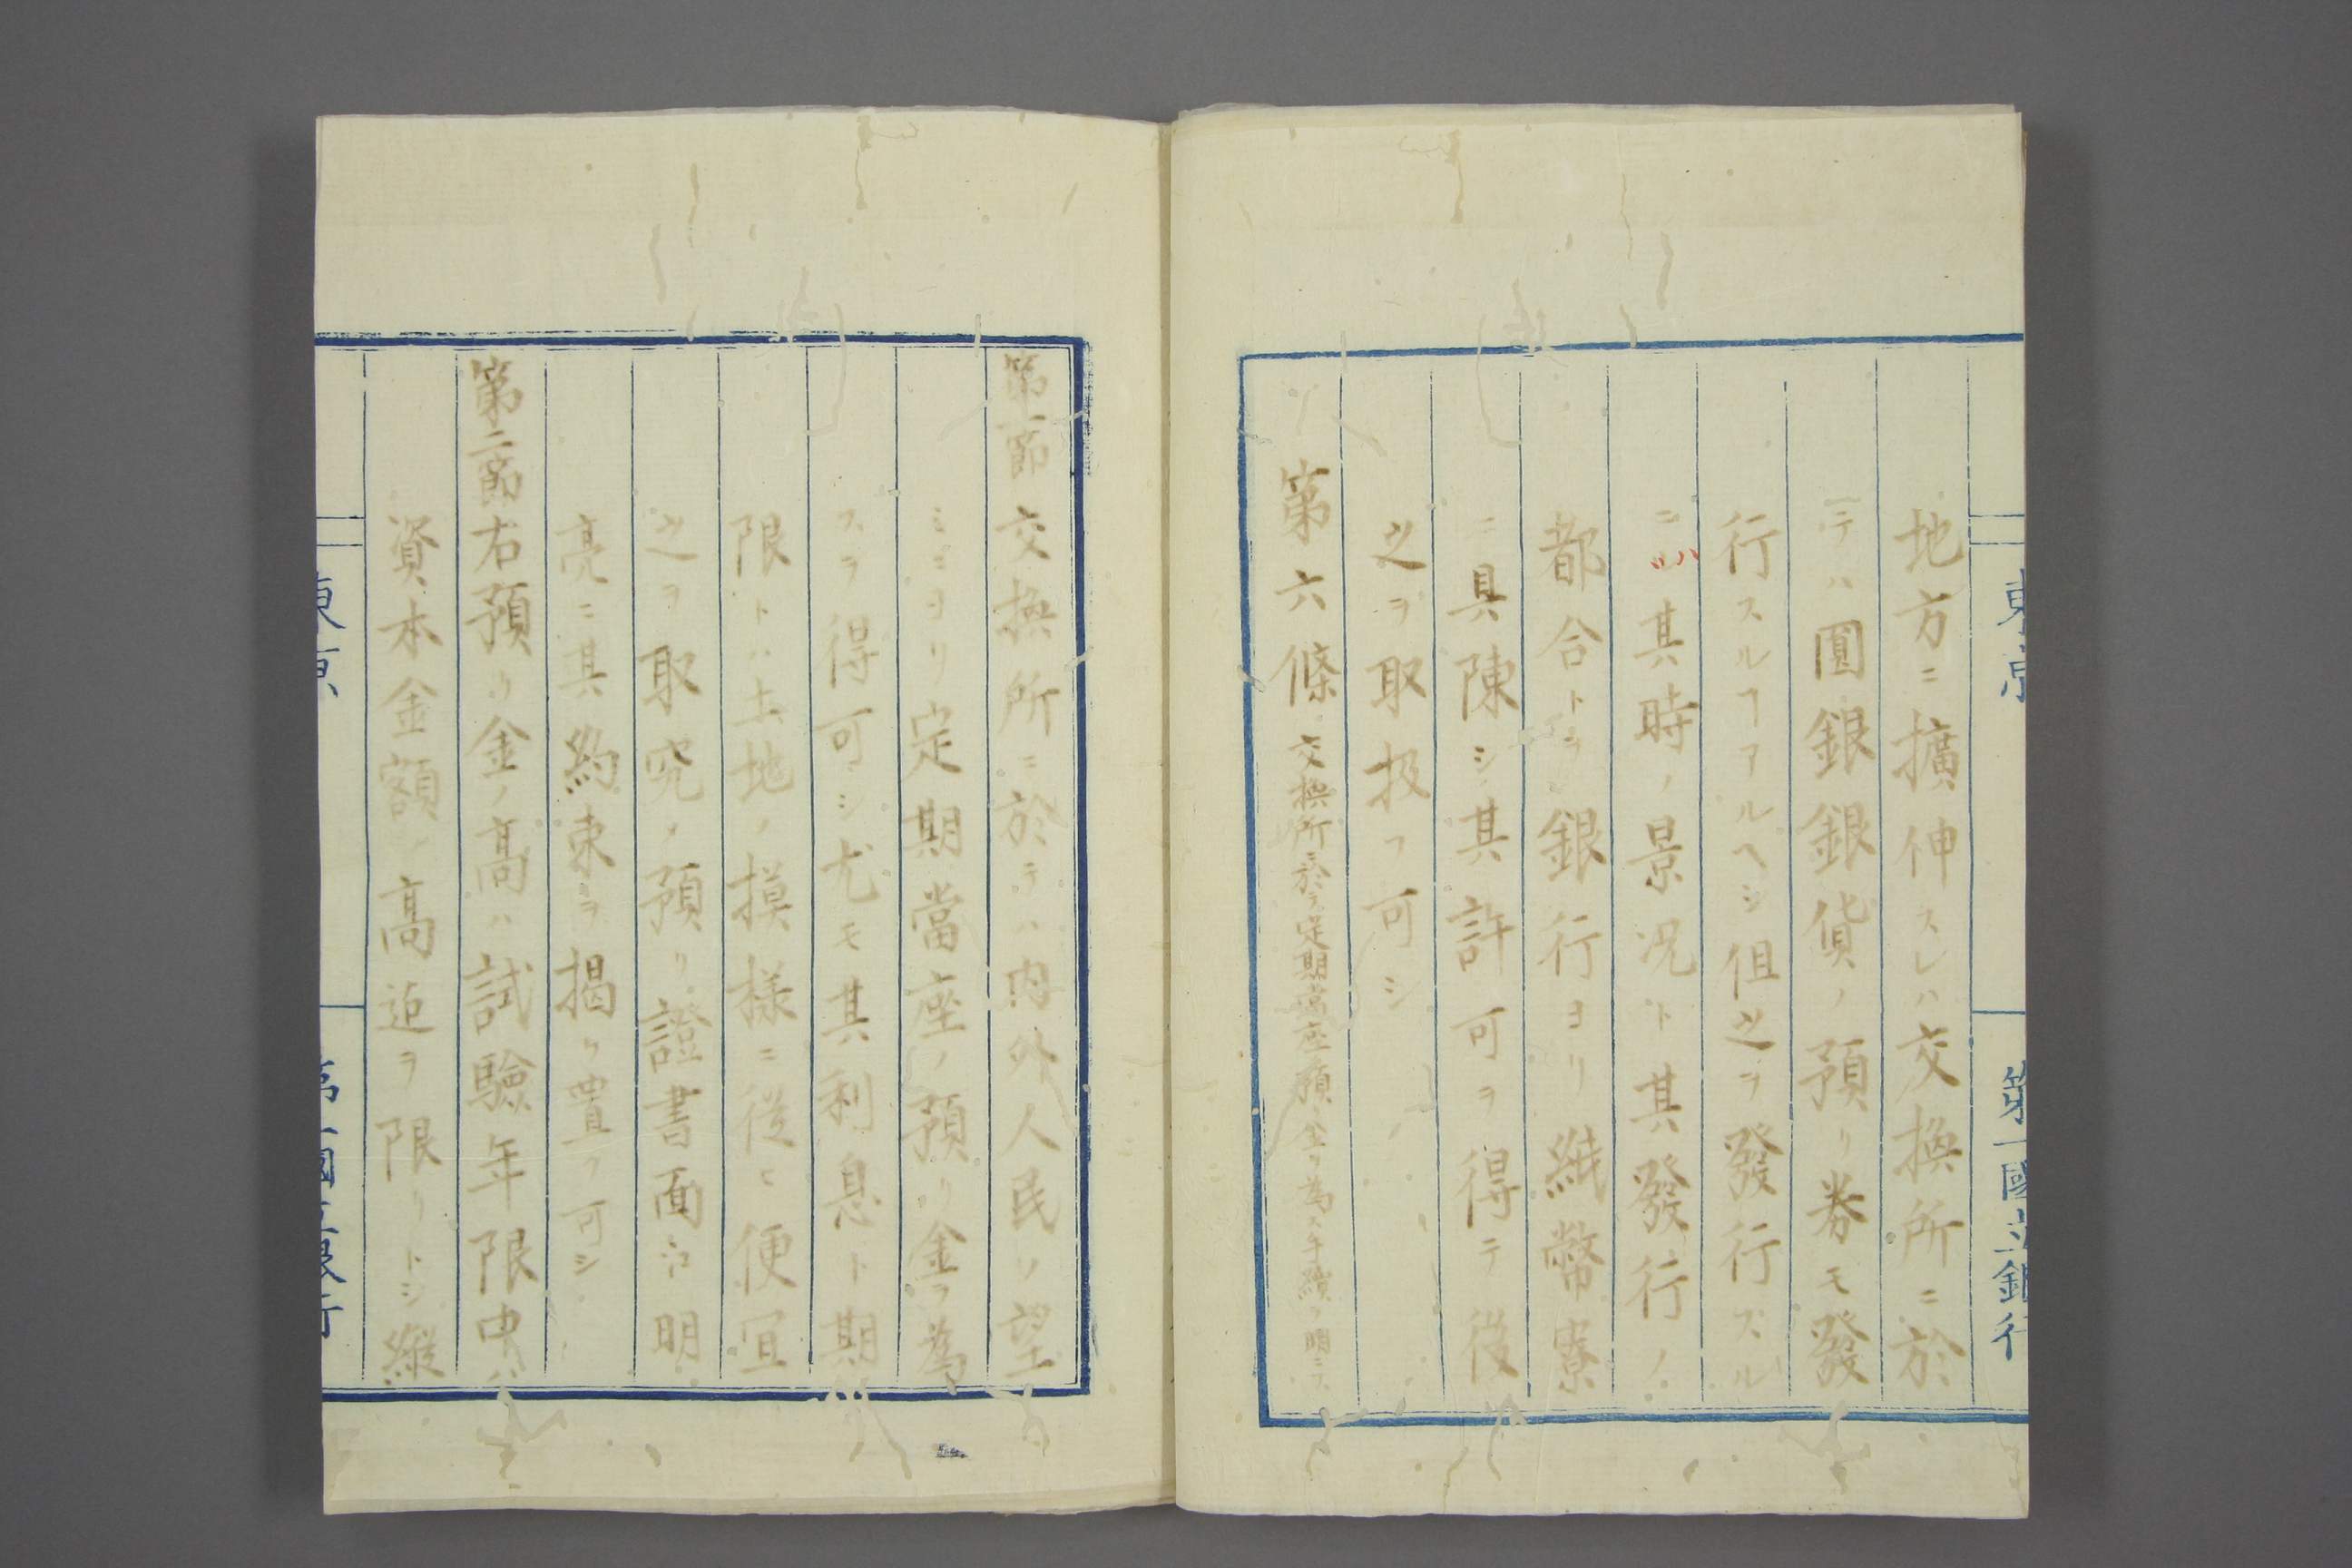 地方ニ擴伸スレハ交換所ニ於
テハ圓銀銀貨ノ預リ券モ發
行スルヿアルヘシ但之ヲ發行スル
ニハ其時ノ景況ト其發行ノ
都合トヲ銀行ヨリ紙幣寮
ニ具陳シ其許可ヲ得テ後
之ヲ取扱フ可シ
第六條 交換所ニ於テ定期當座預リ金ヲ為ス手續ヲ明ニス
第一節 交換所ニ於テハ内外人民ノ望
ミニヨリ定期當座ノ預リ金ヲ為
スヲ得可シ尤モ其利息ト期
限トハ土地ノ摸様ニ従ヒ便宜
之ヲ取究メ預リ證書面ニ明
亮ニ其約束ヲ掲ケ置ク可シ
第二節 右預リ金ノ高ハ試驗年限中ハ
資本金額ノ高迄ヲ限リトシ縦
東京
第一國立銀行